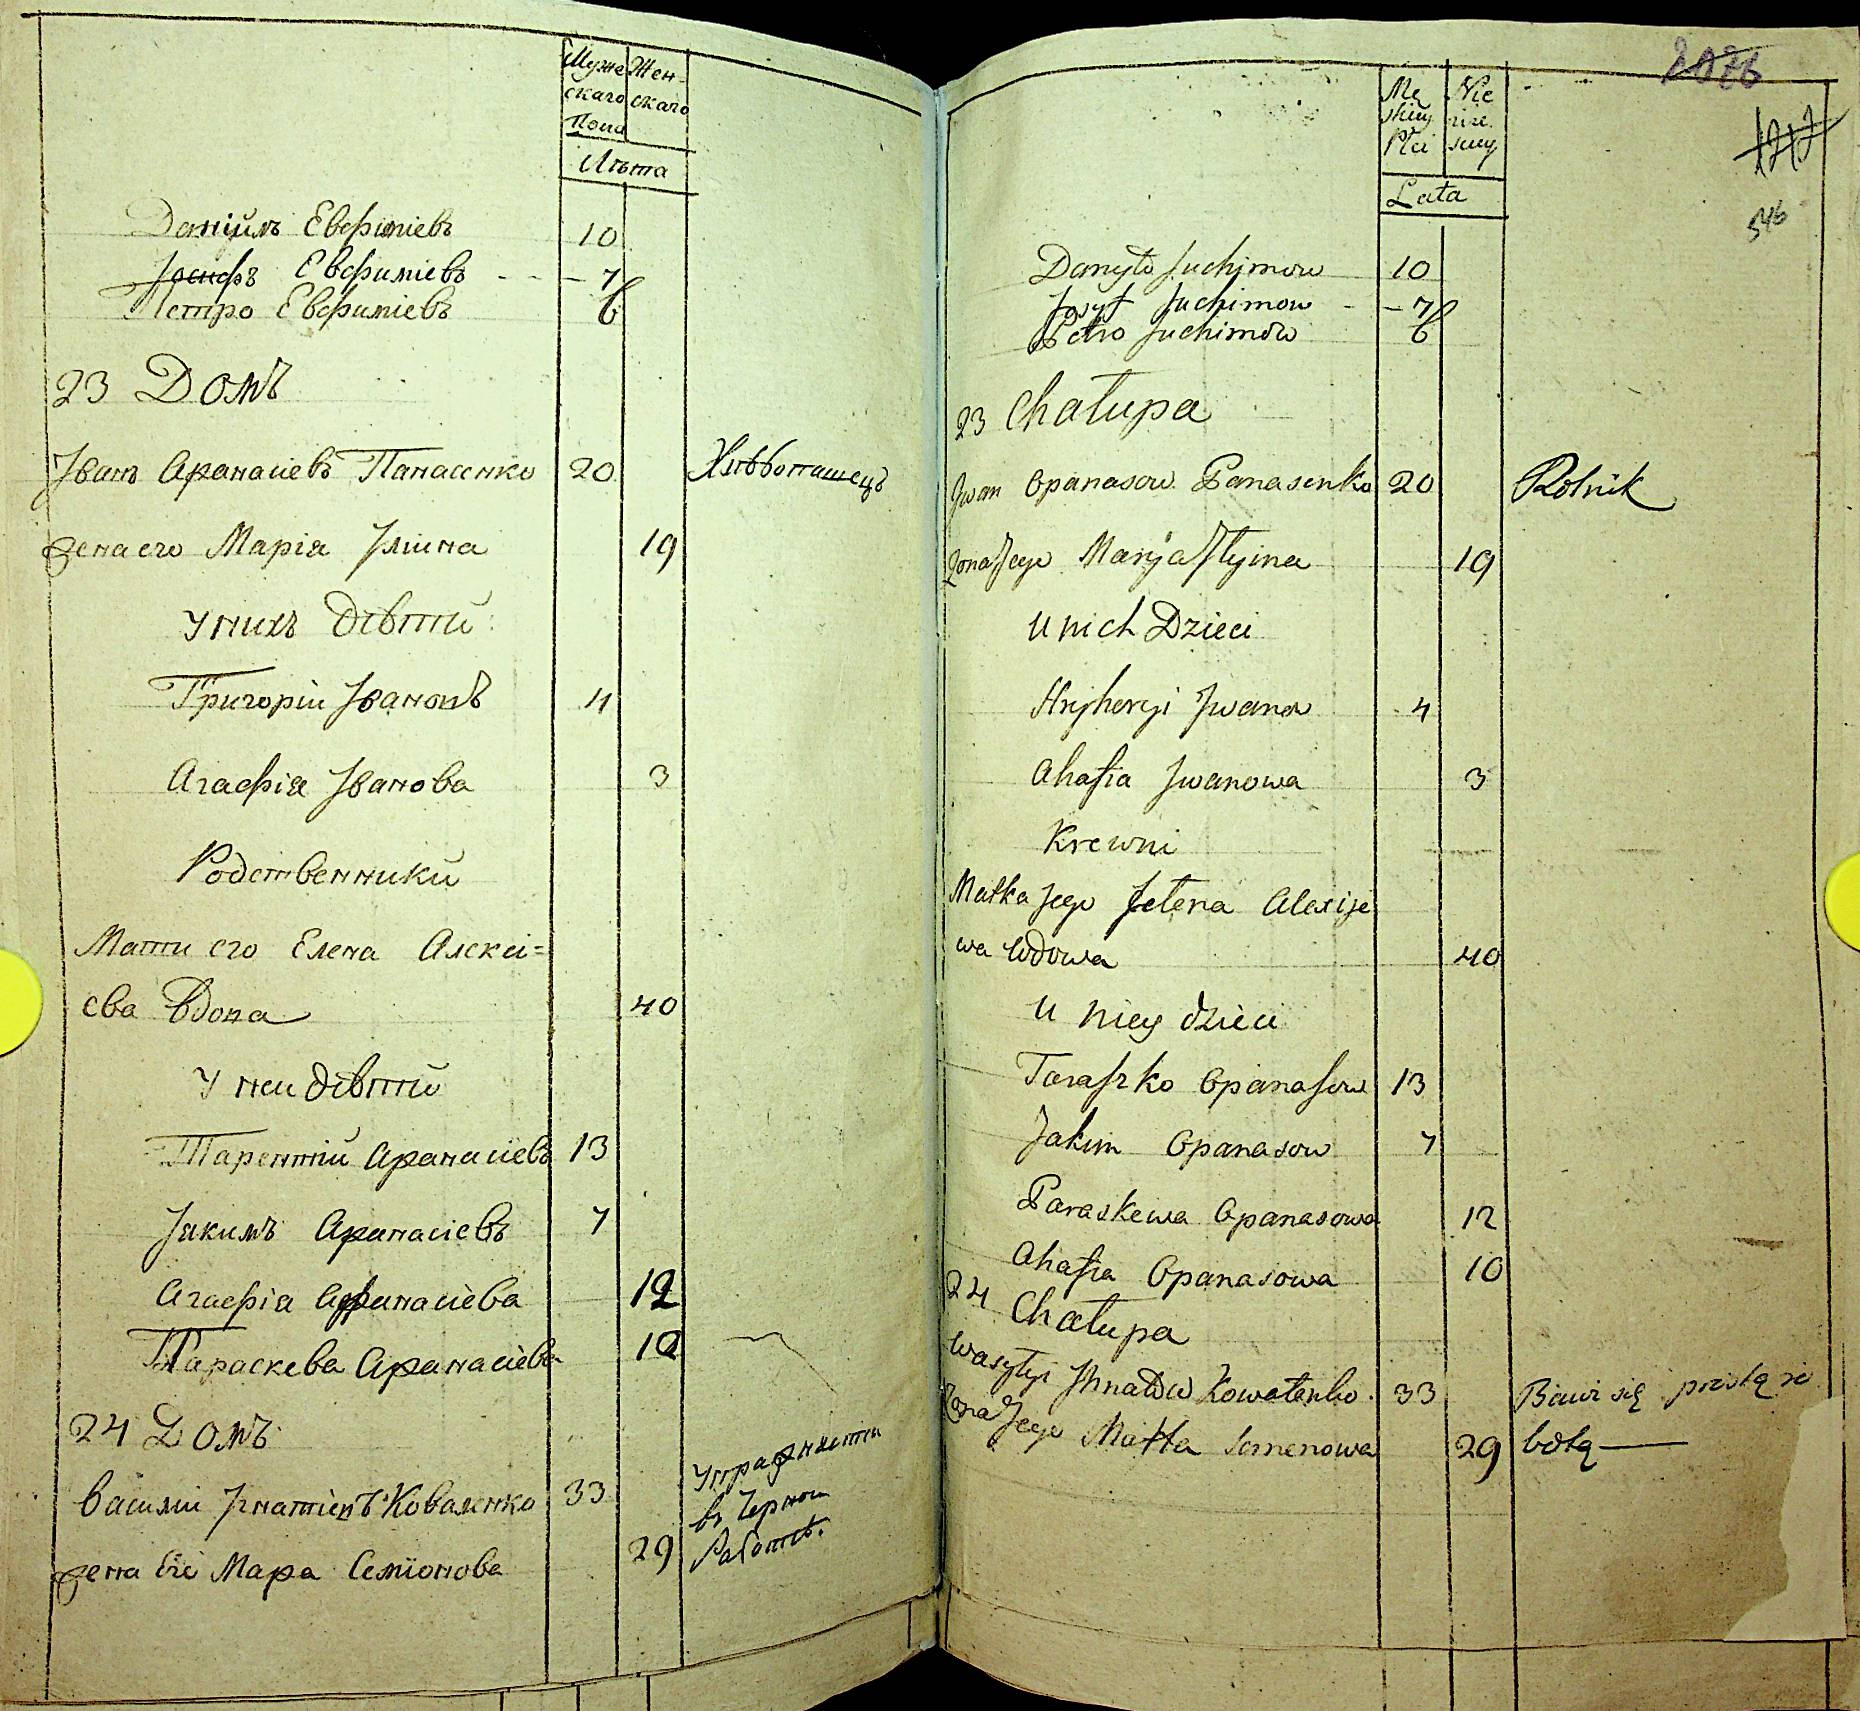 Муже Жен-
скаго скаго
Пола
Лѣта
Даніилъ Евфиміевъ 10
Іосифъ Евфиміевъ - - - 7
Петро Евфиміевъ 6
23 Домъ
Іванъ Афанасіевъ Панасенко 20 Хлѣбопашецъ
жена его Марія Іліина 19
У нихъ дѣвтти
Григорій Івановъ 4
Агафія Іванова 3
Родственники
Мати его Елена Алексі=
ева вдова 40
У неи дѣвтти
Тарентій Афанасіевъ 13
Іакимъ Афанасіевъ 7
Агафія Афанасіева 12
Параскева Афанасіева 10
24 Домъ
Василій Ігнатіевъ Коваленко 33 Упражняети
въ Черной
жена Его Марfа Семіонова 29 Работѣ.
2076
1212
546
Mę Nie
skiey wie
Płci sciey
Lata
Danyło Juchimow 10
Josyf Juchimow - - 7
Petro Juchimow 6
23 Chałupa
Jwan Opanasow Panasenko 20 Rolnik
Zona Jego Marya Jlyina 19
U nich Dzieci
Hryhoryi Jwanow 4
Ahafia Jwanowa 3
Krewni
Matka Jego Jelena Alexije
wa wdowa 40
U niey dzieci
Taraszko Opanasow 13
Jakim Opanasow 7
Paraskewa Opanasowa 12
Ahafia Opanasowa 10
24 Chałupa
Wasylyi Jhnatow Kowalenko 33 Bawi się prostą ro
Zona Jego Marta Semenowa 29 botą